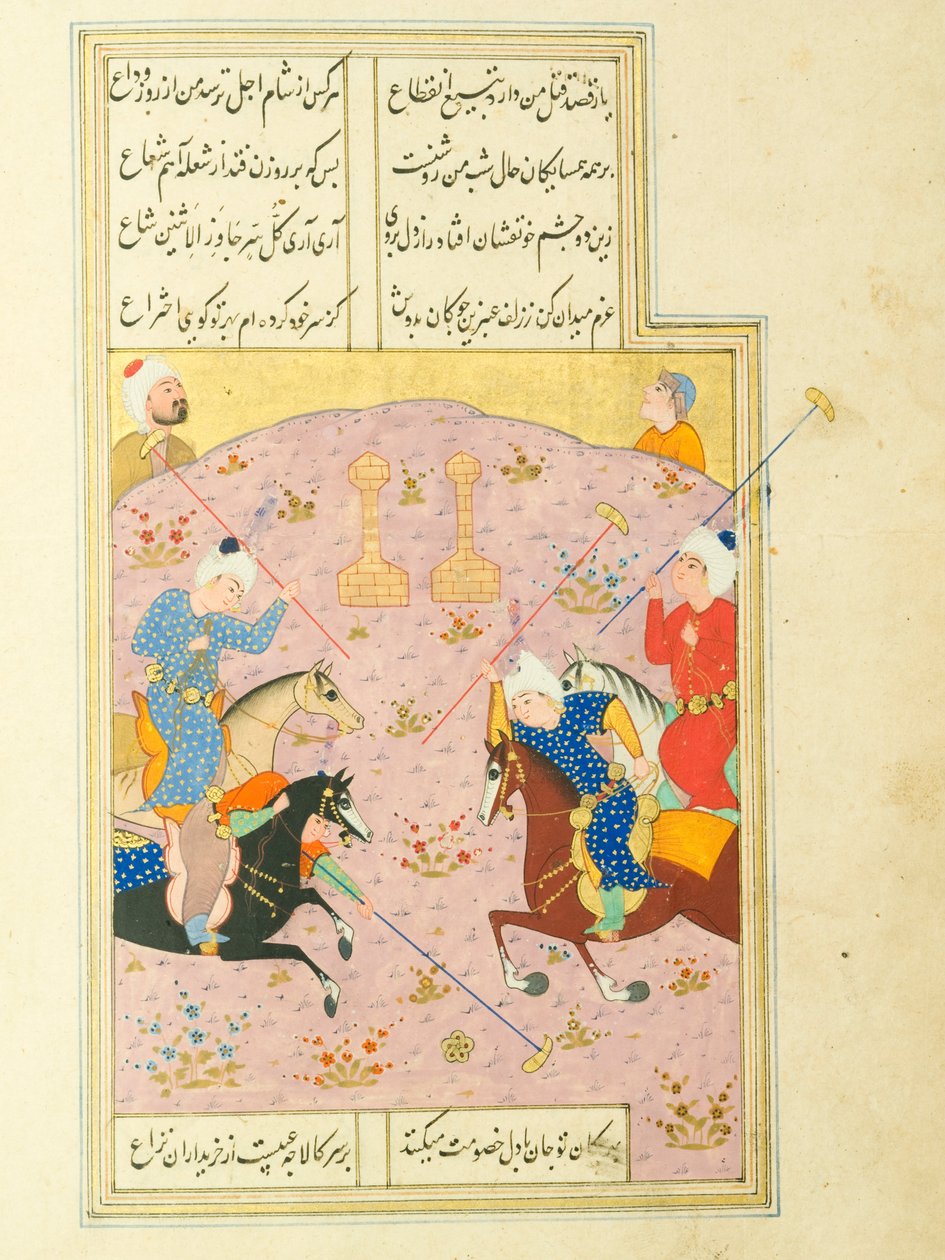 یار قصد قتل من دارد بتیغ انقطاع هرکس از شام اجل ترسد من از روز وداع
بر همه همسایکان حال شب من روشنست بس که بر روزن فتد از شعله آهم شعاع
زین دو چشم خونفشان افتاد راز دل بروی آری آری کُلُّ سِرٍّ جاوَزَ الاِثنین شاع
عزم میدان کن ز زلف عنبرین چوکان بدوش کز سر خود کرده ام بهر تو کویی اختراع
تو جان با دل خصومت میکند بر سر کالا چه عیبست از خریداران نزاع